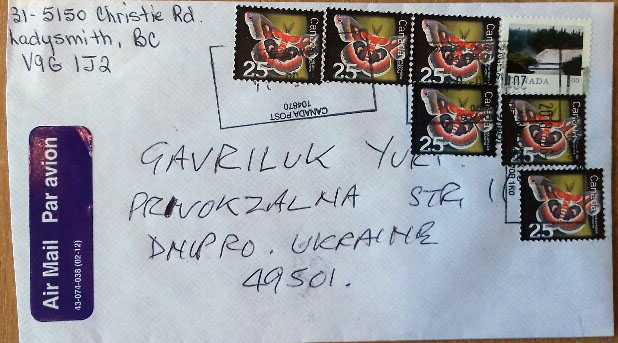 31-5150 Christie Rd.
Ladysmith, BC
V9G 1J2
Canada 25
Canada 25
Canada 25
CANADA
Canada 25
Canada 25
Canada 25
CANADA POST
104870
Air Mail Par avion
43-074-038 (02-12)
GAVRILUK YURI
PRIVOKZALNA STR, 11
DNIPRO. UKRAINE
49501.